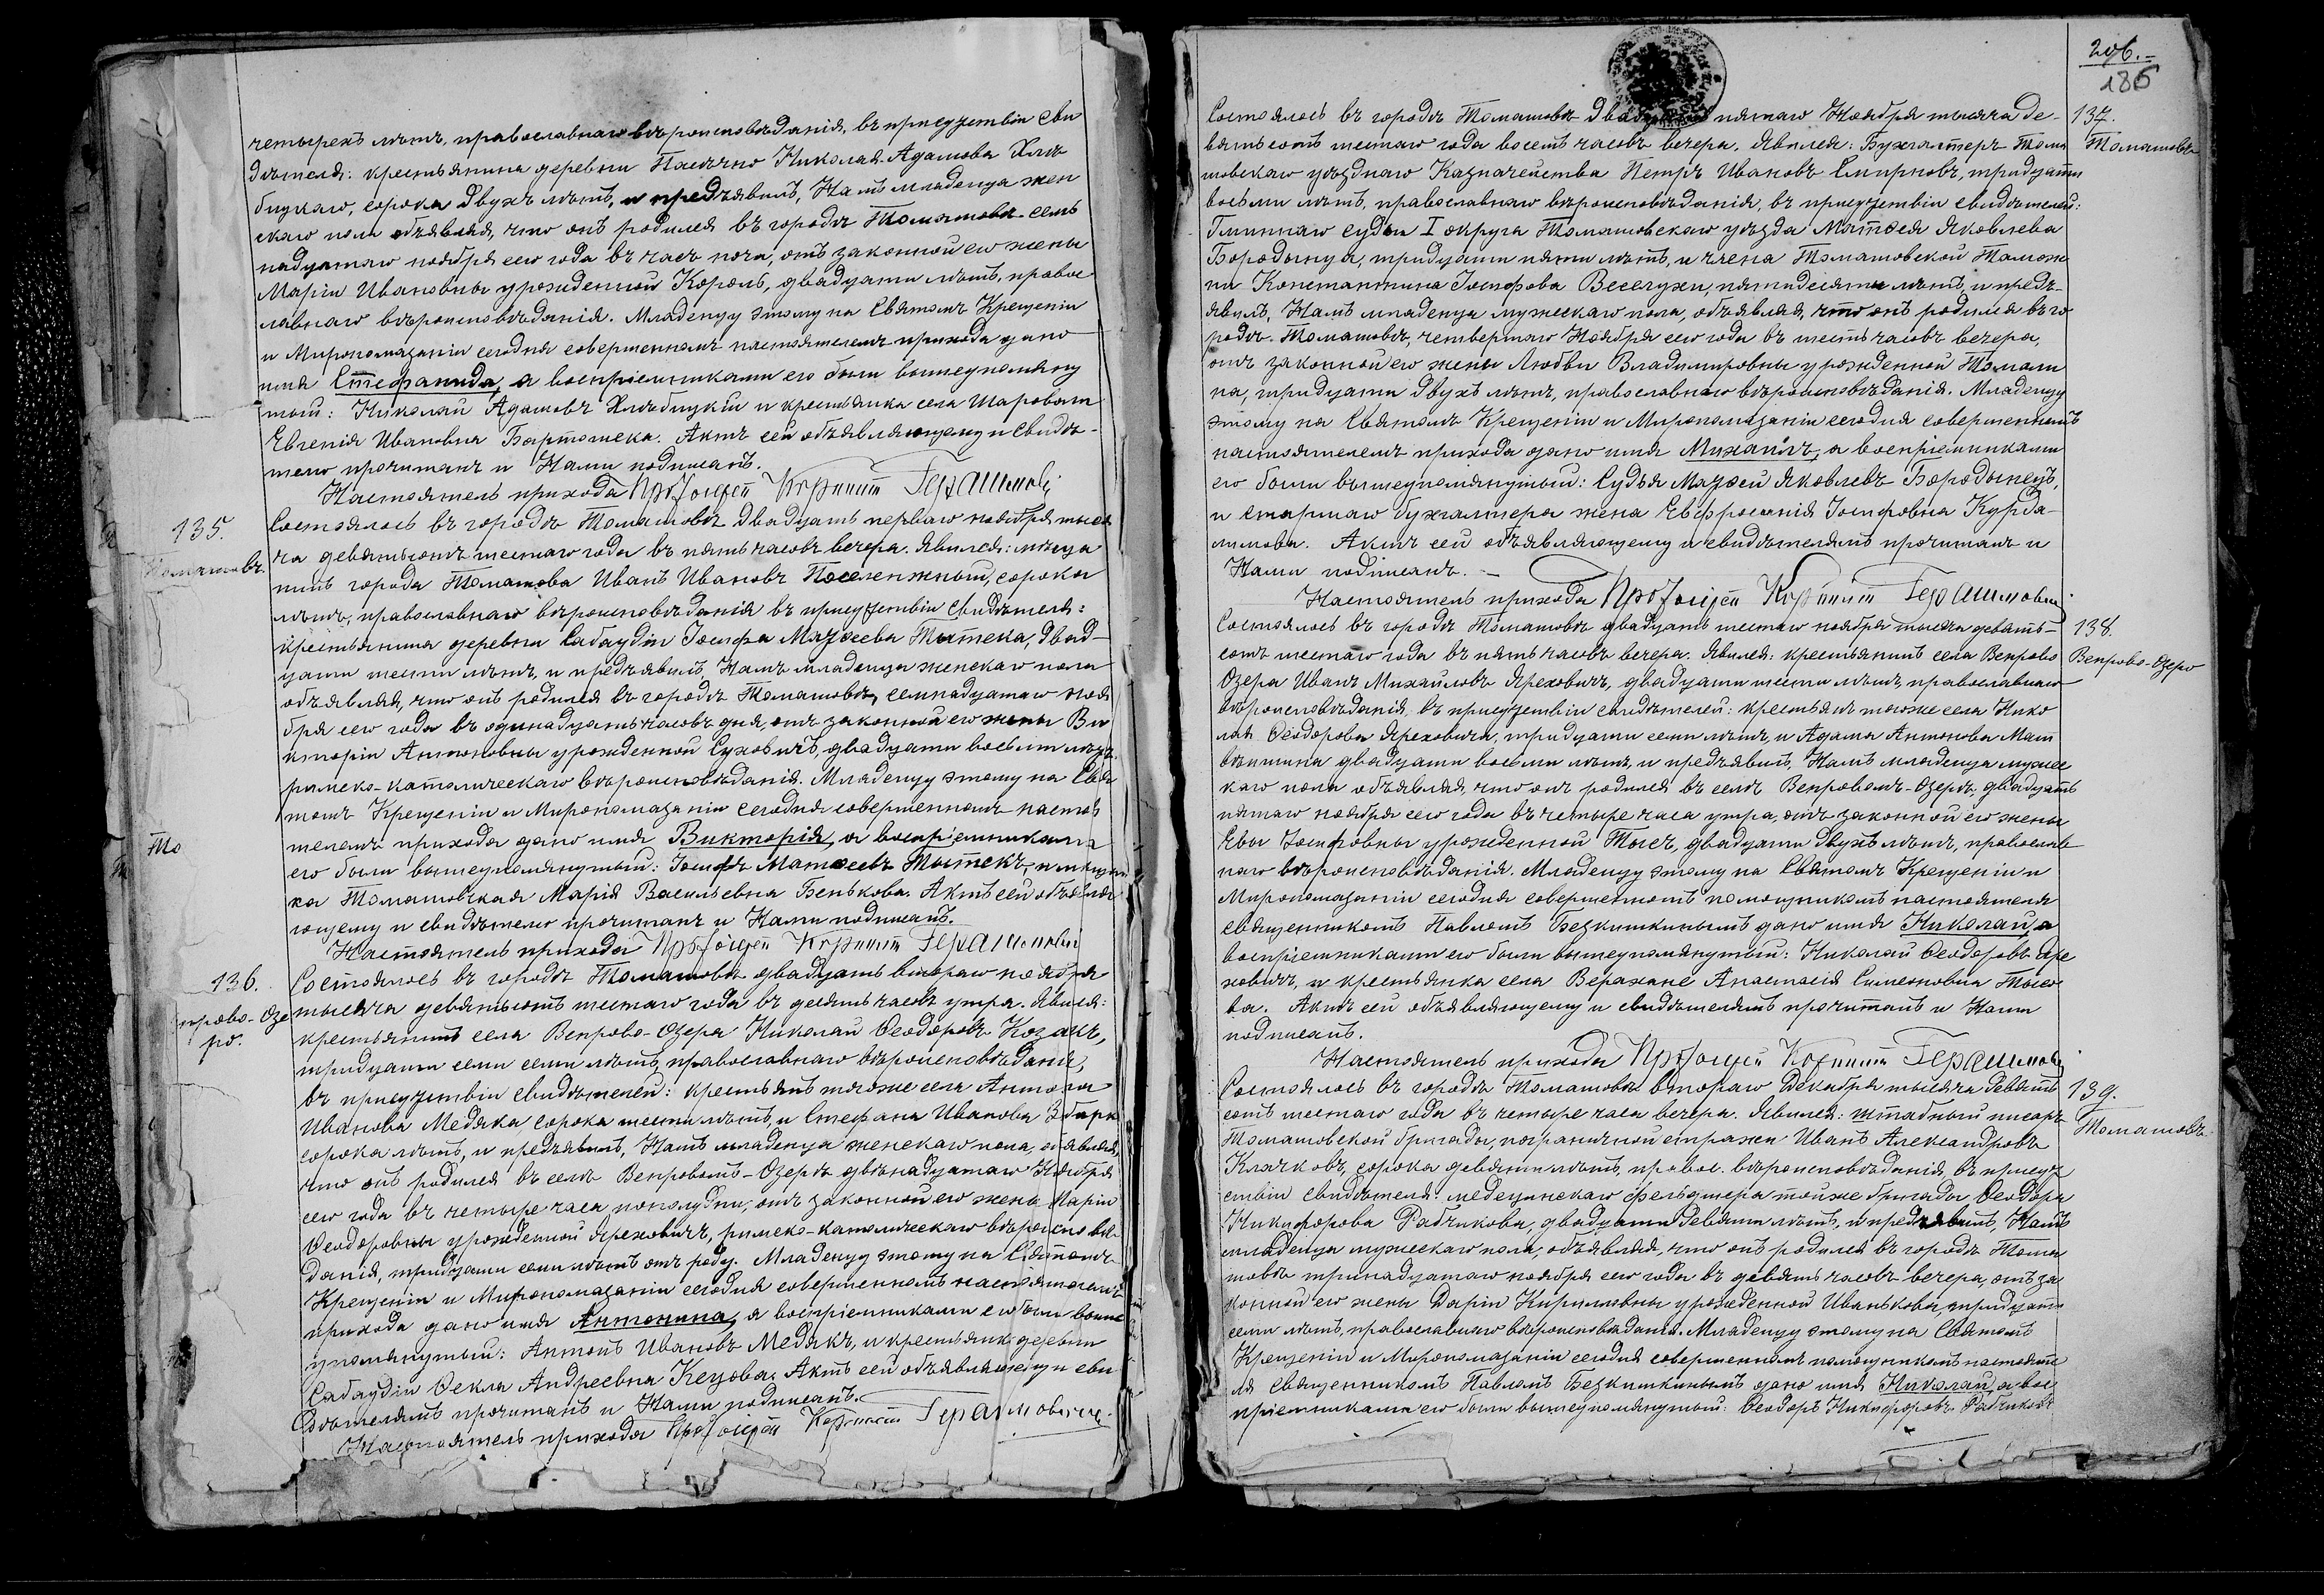 четырехъ лѣтъ, православнаго вѣроисповѣданія, въ присутствіи сви
дѣтеля: крестьянина деревни Пасѣчно Николая Адамова Хлѣ
бицкаго, сорока двухъ лѣтъ, и предъявилъ Намъ младенца жен
скаго пола объявляя, что онъ родился въ городѣ Томашовѣ сем
надцатаго ноября сего года въ часъ ночи, отъ законной его жены
Маріи Ивановны урожденной Король, двадцати лѣтъ, правос
лавнаго вѣроисповѣданія. Младенцу этому на Святомъ Крещеніи
и Миропомазаніи сегодня совершенномъ настоятелемъ прихода дано
имя Стефанида, а воспріемниками его были вышеупомяну
тый: Николай Адамовъ Хлѣбицкій и крестьянка села Шаровоти
Евгенія Ивановна Бартошека. Актъ сей объявляющему и свидѣ-
телю прочитанъ и Нами подписанъ.
Настоятель прихода Протоіерей Корнилій Герашимовъ
135.
Томашовъ.
Состоялось въ городѣ Томашовѣ двадцать перваго ноября тыся
ча девятьсотъ шестаго года въ пять часовъ вечера. Явился: мѣща
нинъ города Томашова Иванъ Ивановъ Поселенжный, сорока
лѣтъ, православнаго вѣроисповѣданія въ присутствіи свидѣтеля:
крестьянина деревни Сабаудіи Іосифа Матѳеева Тытека, двад-
цати шести лѣтъ, и предъявилъ Намъ младенца женскаго пола
объявляя, что онъ родился въ городѣ Томашовѣ, семнадцатаго ноя
бря сего года въ одинадцать часовъ дня, отъ законной его жены Ви
кторіи Антоновны урожденной Суховичъ, двадцати восьми лѣтъ,
римско-католическаго вѣроисповѣданія. Младенцу этому на Свя
томъ Крещеніи и Миропомазаніи сегодня совершенномъ настоя
телемъ прихода дано имя Викторія, а воспріемниками
его были вышеупомянутый: Іосифъ Матѳеевъ Тытекъ, и мѣщан
ка Томашовская Марія Васильевна Бенькова. Актъ сей объявля
ющему и свидѣтелю прочитанъ и Нами подписанъ.
Настоятель прихода Протоіерей Корнилій Герашимовъ
136.
Состоялось въ городѣ Томашовѣ двадцать втораго ноября
прово-Озе
ро.
тысяча девятьсотъ шестаго года въ десять часовъ утра. Явился:
крестьянинъ села Вепрово-Озера Николай Ѳеодоровъ Козакъ,
тридцати семи лѣтъ, православнаго вѣроисповѣданія,
въ присутствіи свидѣтелей: крестьянъ тогоже села Антона
Иванова Медяка сорока шести лѣтъ, и Стефана Иванова
сорока лѣтъ, и предъявилъ Намъ младенца женскаго пола, объявляя,
что онъ родился въ селѣ Вепровомъ-Озерѣ двѣнадцатаго Ноября
сего года въ четыре часа пополудни, отъ законной его жены Маріи
Ѳеодоровны урожденной Яреховичъ, римско-католическаго вѣроисповѣ
данія, тридцати семи лѣтъ отъ роду. Младенцу этому на Святомъ
Крещеніи и Миропомазаніи сегодня совершенномъ настоятелемъ
прихода дано имя Антонина, а воспріемниками его были выше
упомянутый: Антонъ Ивановъ Медякъ, и крестьянка деревни
Сабаудіи Ѳекла Андреевна Кецова. Актъ сей объявляющему и сви
дѣтелямъ прочитанъ и Нами подписанъ.
Настоятель прихода Протоіерей Корнилій Герашимовъ
206.
186
137.
Томашовъ
Состоялось въ городѣ Томашовѣ двадцать пятаго Ноября тысяча де-
вятьсотъ шестаго года восемь часовъ вечера. Явился: Бухгалтеръ Тома
шовскаго уѣзднаго Казначейства Петръ Ивановъ Смирновъ, тридцати
восьми лѣтъ, православнаго вѣроисповѣданія, въ присутствіи свидѣтелей:
Гминнаго судьи I округа Томашовскаго уѣзда Матѳея Яковлева
Бородынца, тридцати пяти лѣтъ, и члена Томашовской Таможни
Константина Іосифова Веселухи, пятидесяти лѣтъ, и предъ-
явилъ Намъ младенца мужескаго пола, объявляя, что онъ родился въ го
родѣ Томашовѣ, четвертаго Ноября сего года въ шесть часовъ вечера,
отъ законной его жены Любви Владимировны урожденной Томани
на, тридцати двухъ лѣтъ, православнаго вѣроисповѣданія. Младенцу
этому на Святомъ Крещеніи и Миропомазаніи сегодня совершенномъ
настоятелемъ прихода дано имя Михаилъ, а воспріемниками
его были вышеупомянутый: Судья Матѳей Яковлевъ Бородынецъ,
и старшаго бухгалтера жена Евфросинія Іосифовна Курда-
лимова. Актъ сей объявляющему и свидѣтелямъ прочитанъ и
Нами подписанъ.
Настоятель прихода Протоіерей Корнилій Герашимовъ
138.
Вепрово-Озеро
Состоялось въ городѣ Томашовѣ двадцать шестаго ноября тысяча девять-
сотъ шестаго года въ пять часовъ вечера. Явился: крестьянинъ села Вепрово
Озера Иванъ Михайловъ Яреховичъ, двадцати шести лѣтъ, православнаго
вѣроисповѣданія, въ присутствіи свидѣтелей: крестьянъ тогоже села Нико
лая Ѳеодорова Яреховича, тридцати семи лѣтъ, и Адама Антонова Мат
вѣишина двадцати восьми лѣтъ, и предъявилъ Намъ младенца мужес
каго пола объявляя, что онъ родился въ селѣ Вепровомъ-Озерѣ, двадцать
пятаго ноября сего года въ четыре часа утра, отъ законной его жены
Евы Іосифовны урожденной Тысъ, двадцати двухъ лѣтъ, православ
наго вѣроисповѣданія. Младенцу этому на Святомъ Крещеніи и
Миропомазаніи сегодня совершенномъ помощникомъ настоятеля
священникомъ Павломъ Безкишкинымъ дано имя Николай, а
воспріемниками его были вышеупомянутый: Николай Ѳеодоровъ Яре
ховичъ, и крестьянка села Верахане Анастасія Симеоновна Тысо
ва. Актъ сей объявляющему и свидѣтелямъ прочитанъ и Нами
подписанъ.
Настоятель прихода Протоіерей Корнилій Герашимовъ
139.
Томашовъ
Состоялось въ городѣ Томашовѣ втораго Декабря тысяча девять
сотъ шестаго года въ четыре часа вечера. Явился: штабный писарь
Томашовской бригады, пограничной стражи Иванъ Александровъ
Клачковъ, сорока девяти лѣтъ, правос. вѣроисповѣданія, въ присут
ствіи свидѣтеля: медецинскаго фельдшера тойже бригады Ѳеодора
Никифорова Рабчикова, двадцати девяти лѣтъ, и предъявилъ Намъ
младенца мужескаго пола, объявляя, что онъ родился въ городѣ Тома
шовѣ тринадцатаго ноября сего года въ девять часовъ вечера, отъ за
конной его жены Даріи Кириловны урожденной Иванькова, тридцати
семи лѣтъ, православнаго вѣроисповѣданія. Младенцу этому на Святомъ
Крещеніи и Миропомазаніи сегодня совершенномъ помощникомъ настояте
ля священникомъ Павломъ Безкишкинымъ дано имя Николай, а вос
пріемниками его были вышеупомянутый: Ѳеодоръ Никифоровъ Рабчиковъ